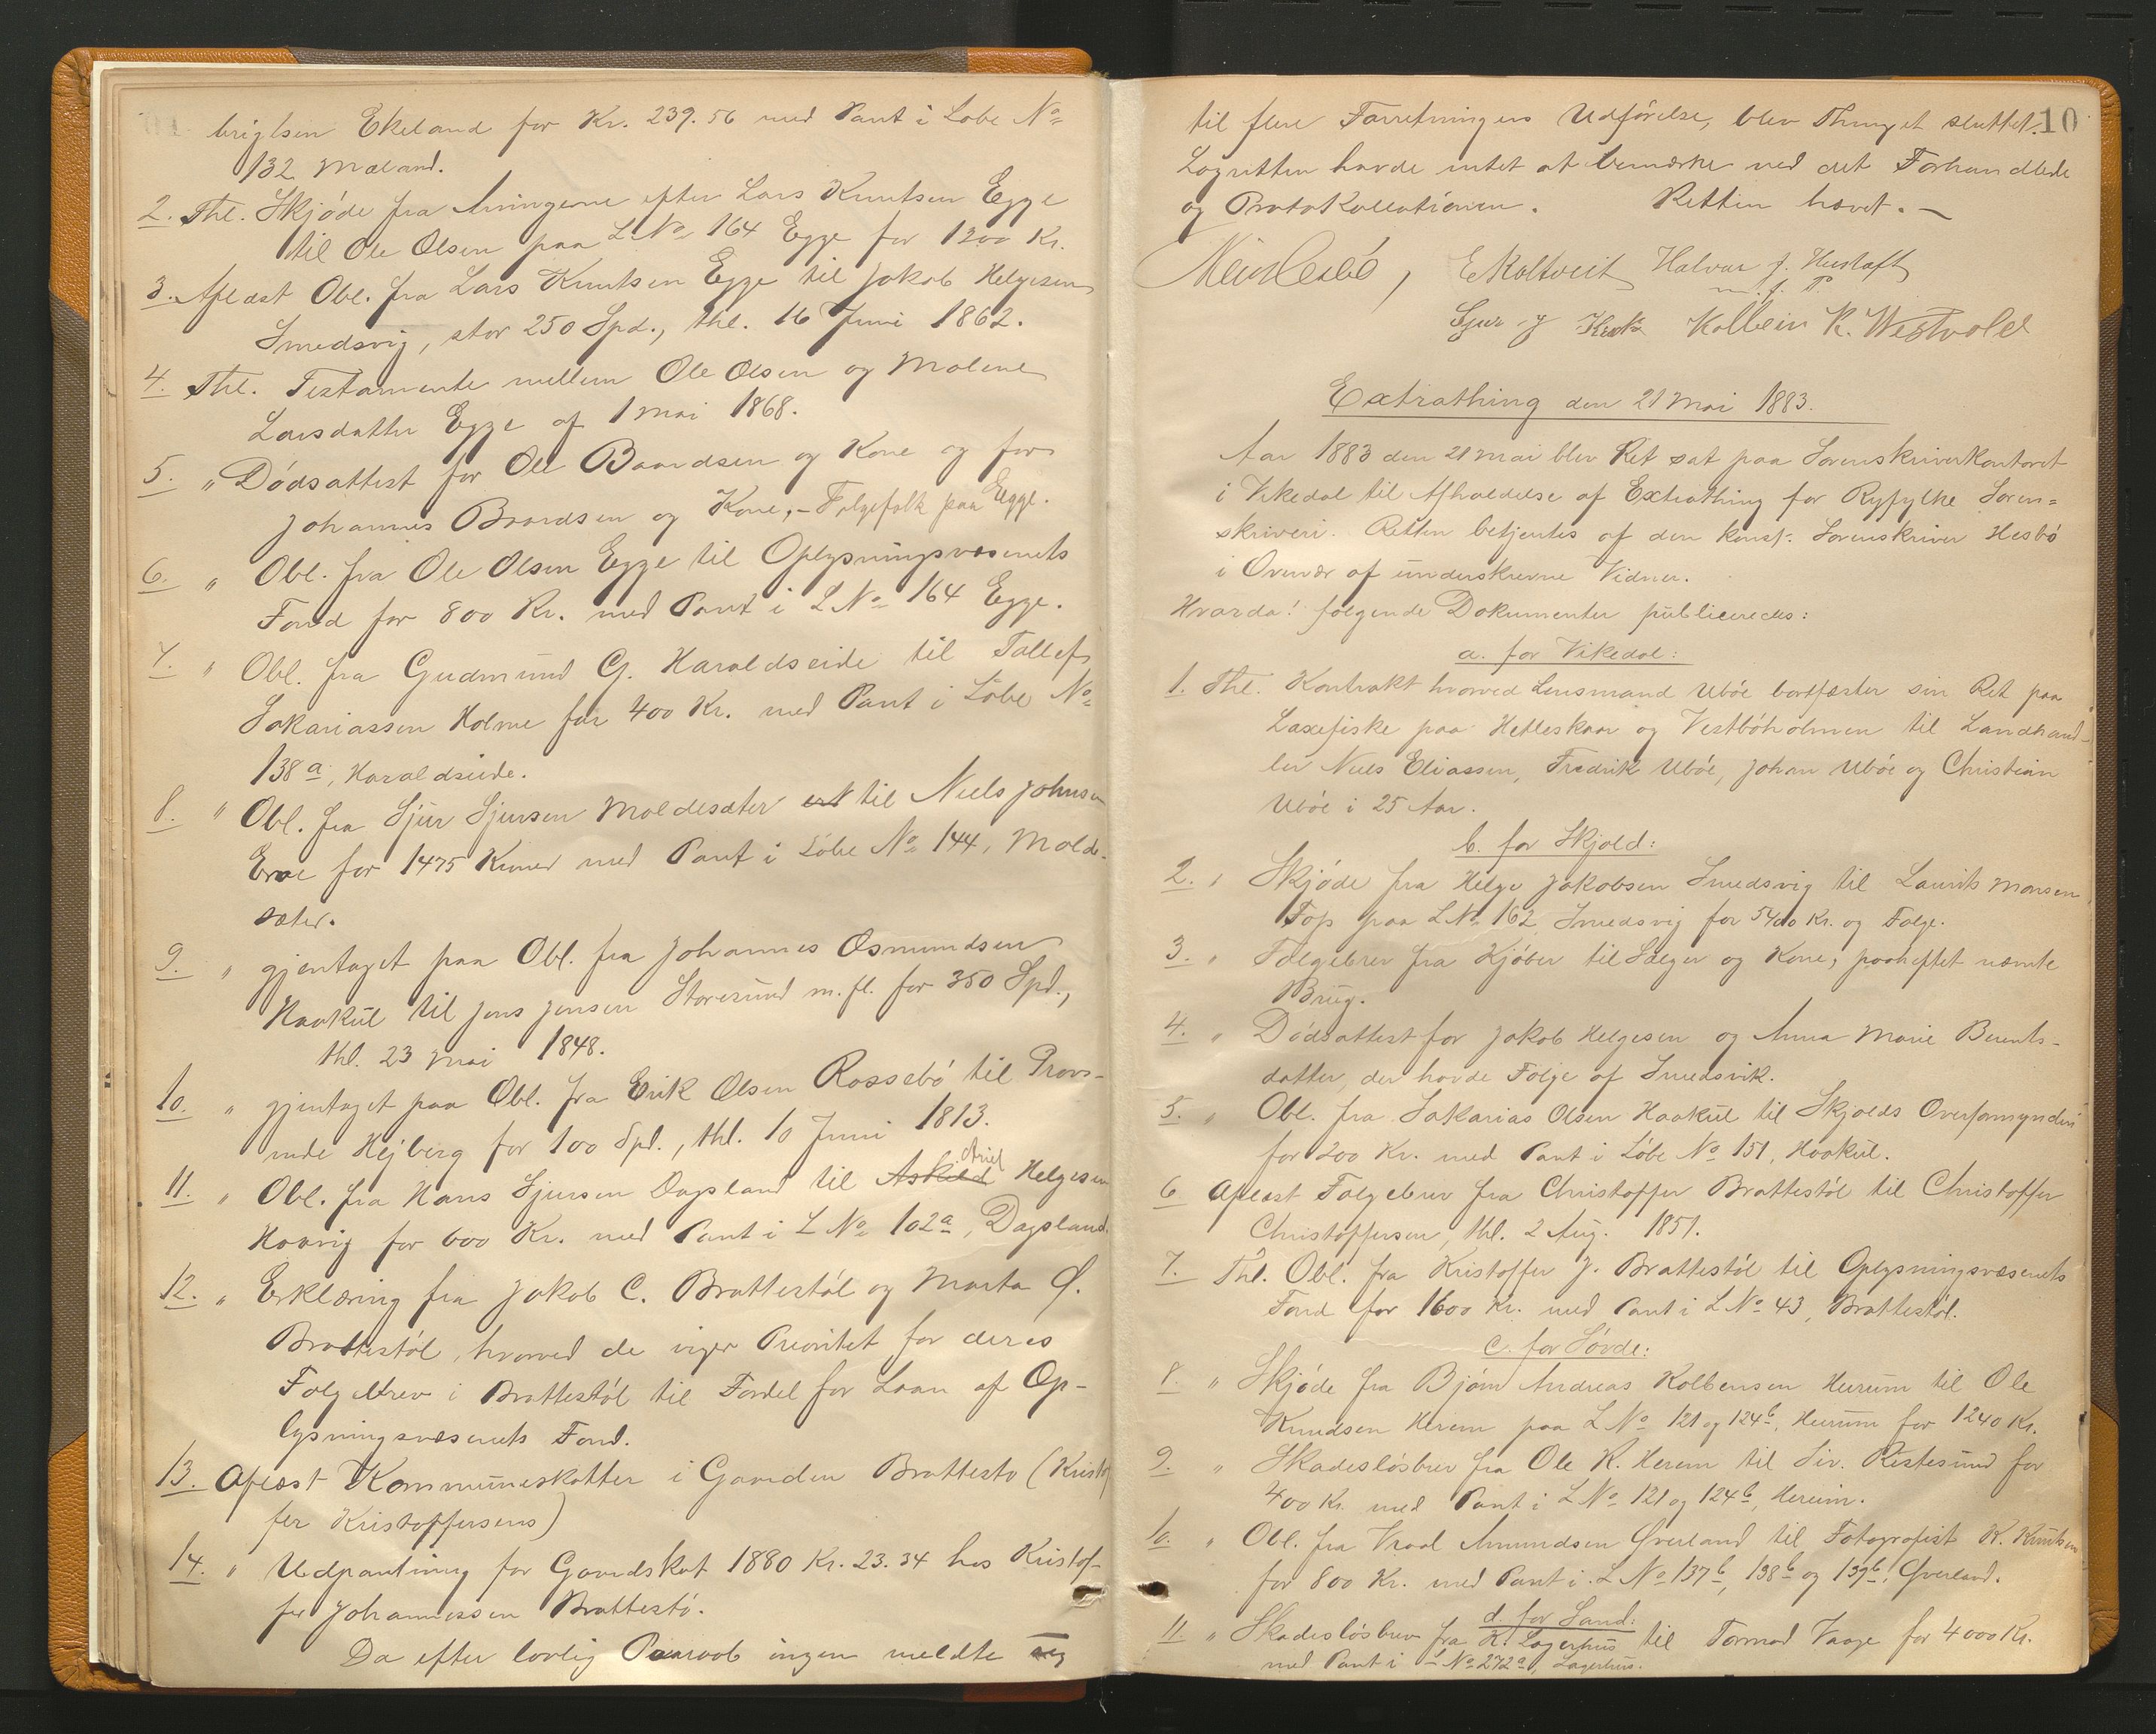 brigtsen Ekeland for Kr. 239.56 med Pant i Løbe No
132 Mæland.
2. Thl. Skjøde fra Arvingerne efter Lars Knutsen Egge
til Ole Olsen paa L No 164 Egge for 1200 Kr.
3. Aflæst Obl. fra Lars Knutsen Egge til Jakob Helgesen
Smedsvig, stor 250 Spd., thl. 16 Juni 1862.
4. Thl. Testamente mellem Ole Olsen og Malene
Larsdatter Egge af 1 Mai 1868.
5. " Dødsattest for Ole Baardsen og Kone og for
Johannes Baardsen og Kone, - Følgefolk paa Egge.
6. " Obl. fra Ole Olsen Egge til Oplysningsvæsenets
Fond for 800 Kr. med Pant i L No 164 Egge.
7. " Obl. fra Gudmund G. Haraldseide til Tollef
Sakariassen Holme for 400 Kr. med Pant i Løbe No
138a, Haraldseide.
8. " Obl. fra Sjur Sjursen Moldesæter til Niels Johnsen
Eroe for 1475 Kroner med Pant i Løbe No 144, Molde-
sæter.
9. " gjentaget paa Obl. fra Johannes Osmundsen
Haakul til Jens Jensen Storesund m.fl. for 350 Spd.,
thl. 23 Mai 1848.
10. " gjentaget paa Obl. fra Erik Olsen Rossebø til Provs-
inde Hejberg for 100 Spd., thl. 10 Juni 1813.
11. " Obl. fra Hans Sjursen Dagsland til Askild Helgesen
Haavig for 600 Kr. med Pant i L No 102a, Dagsland.
12. " Erklæring fra Jakob C. Brattestøl og Marta O.
Brattestøl, hvorved de viger Prioritet for deres
Følgebrev i Brattestøl til Fordel for Laan af Op-
lysningsvæsenets Fond.
13. Aflæst Kommuneskatter i Gaarden Brattestø (Kristof
fer Kristoffersens)
14. " Udpantning for Gaardskat 1880 Kr. 23.34 hos Kristof-
fer Johannessen Brattestø.
Da efter lovlig Paaraab ingen meldte sig
10
til flere Forretningers Udførelse, blev Thinget sluttet.
Lagretten havde intet at bemærke ved det Forhandlede
og Protokollationen. Retten hævet. -
E Koltveit Halvar J.
m. f. P.
Sjur J Kolbein K. Westvold
Extrathing den 21 Mai 1883.
Aar 1883 den 21 Mai blev Ret sat paa Sorenskriverkontoret
i Vikedal til Afholdelse af Extrathing for Ryfylke Soren=
skriveri. Retten betjentes af den konst. Sorenskriver Hesbø
i Overvær af underskrevne Vidner.
Hvorda! følgende Dokumenter publiceredes:
a. for Vikedal:
1. Thl. Kontrakt hvorved Lensmand Ubøe bortfæster sin Ret paa
Laxefiske paa Hetleskaar og Vestbøholmen til Landhand-
ler Niels Eliassen, Fredrik Ubøe, Johan Ubøe og Christian
Ubøe i 25 Aar.
b. for Skjold:
2. " Skjøde fra Helge Jakobsen Smedsvig til Laurits Monsen
Fop paa L No 162, Smedsvig for 5400 Kr. og Følge.
3. " Følgebrev fra Kjøber til Sælger og Kone, paaheftet nævnte
Brug.
4. " Dødsattest for Jakob Helgesen og Anna Marie Berents-
datter, der havde Følge af Smedsvik.
5. " Obl. fra Sakarias Olsen Haakul til Skjolds Overformynderi
for 200 Kr. med Pant i Løbe No 151, Haakul.
6 Aflæst Følgebrev fra Christoffer Brattestøl til Christoffer
Christoffersen, thl. 2 Aug. 1851.
7. Thl. Obl. fra Kristoffer J. Brattestøl til Oplysningsvæsenets
Fond for 1600 Kr. med Pant i L No 43, Brattestøl.
c. for Søvde:
8. " Skjøde fra Bjørn Andreas Kolbensen Herum til Ole
Knudsen Hereim paa L No 121 og 124b, Hereim for 1240 Kr.
9. " Skadesløsbrev fra Ole K. Hereim til Siv. Ristesund for
400 Kr. med Pant i L No 121 og 124b, Hereim.
10. " Obl. fra Vraal Amundsen Øverland til Fotografist K. Knutsen
for 800 Kr. med Pant i L No 137b, 138b og 139b, Øverland.
d. for Sand:
11. " Skadesløsbrev fra K. Lagerhus til Tormod Vaage for 4000 Kr.
med Pant i - No 272a, Lagerhus.